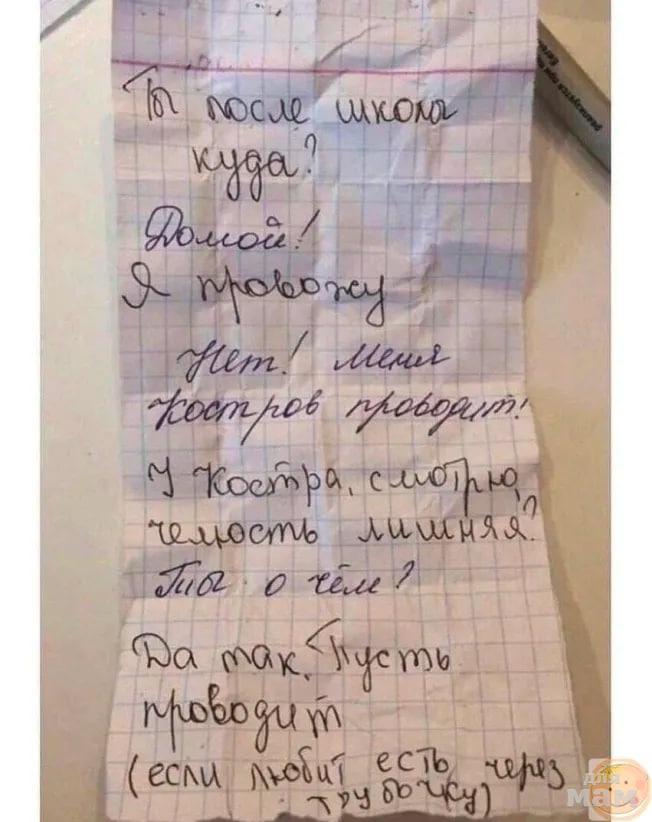 Ты после школы
куда?
Домой!
Я провожу
Нет! Меня
Костров проводит!
У Костра, смотрю,
челюсть лишняя?
Ты о чём?
Да так. Пусть
проводит
(если любит есть через
трубочку)
для
мам